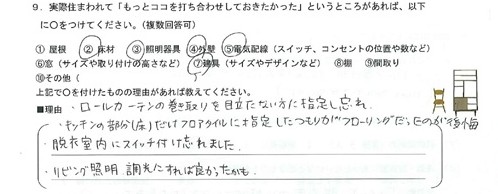 9．実際住まわれて「もっとココを打ち合わせしておきたかった」というところがあれば、以下
に〇をつけてください。（複数回答可）
① 屋根 ② 床材 ③ 照明器具 ④外壁 ⑤電気配線（スイッチ、コンセントの位置や数など）
⑥窓（サイズや取り付けの高さなど） ⑦建具（サイズやデザインなど） ⑧棚 ⑨間取り
⑩その他（
上記で〇を付けたものの理由があれば教えてください。
■理由 ・ロールカーテンの巻取りを目立たない方に指定し忘れ.
・キッチンの部分(床)だけフロアタイルに指定したつもりがフローリングだったのが後悔
・脱衣室内にスイッチ付け忘れました.
・リビング照明.調光にすれば良かったかも.